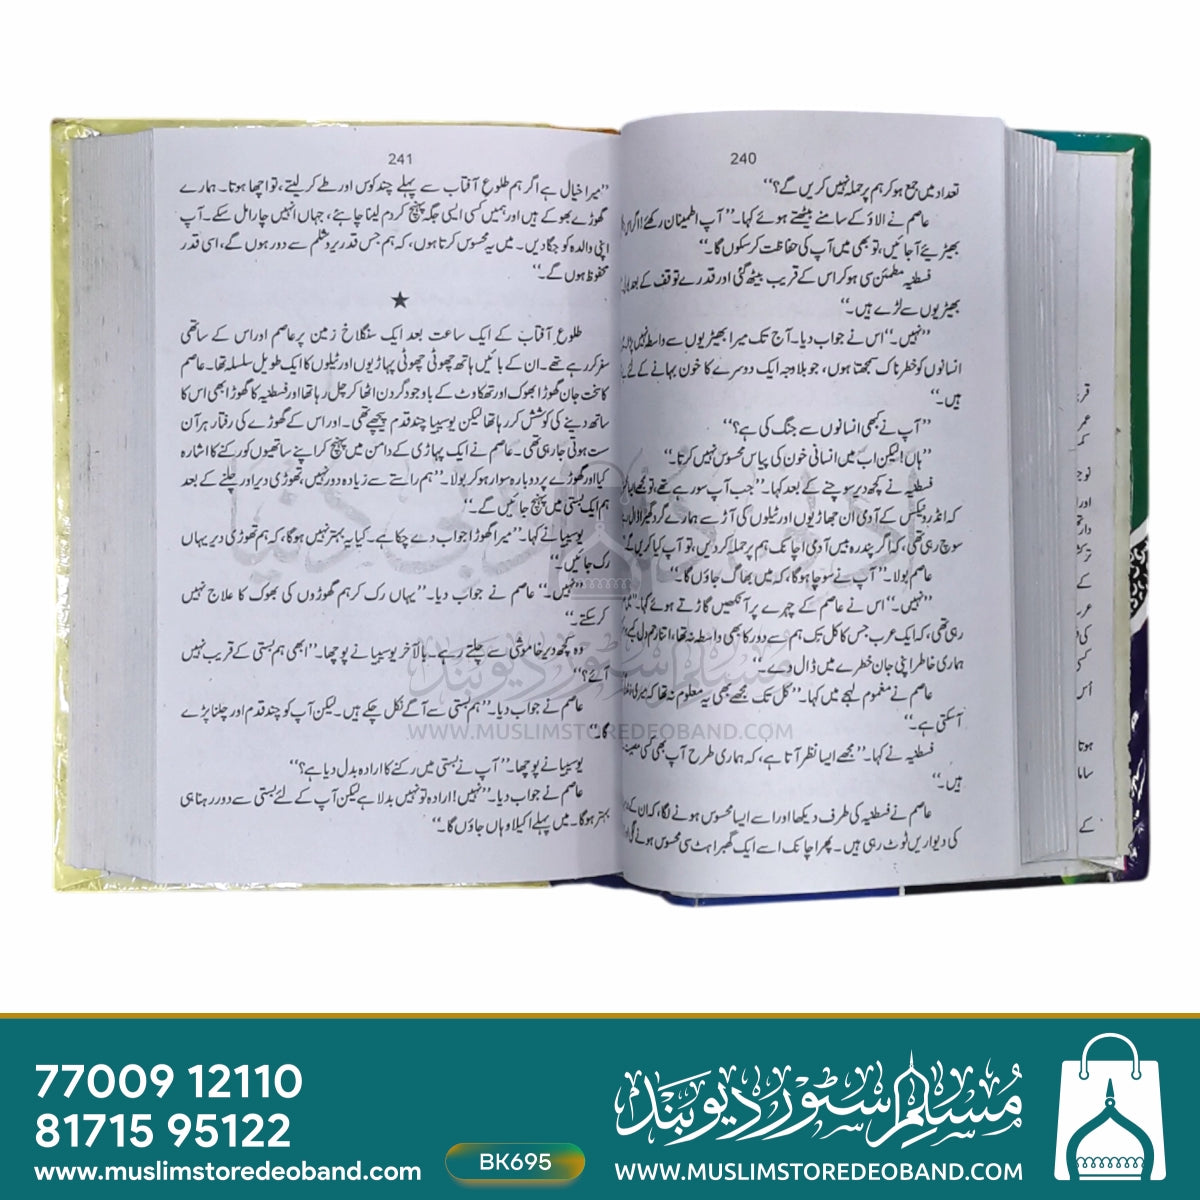 240
تعداد میں جمع ہو کر ہم پر حملہ نہیں کریں گے؟‘‘
عاصم نے الاؤ کے سامنے بیٹھتے ہوئے کہا۔ ’’آپ اطمینان رکھئے! اگر اس
بھیڑیئے آ جائیں، تو بھی میں آپ کی حفاظت کر سکوں گا۔‘‘
فسطنیہ مطمئن سی ہو کر اس کے قریب بیٹھ گئی اور قدرے توقف کے بعد بولی
بھیڑیوں سے لڑے ہیں۔‘‘
’’نہیں۔‘‘ اس نے جواب دیا۔ آج تک میرا بھیڑیوں سے واسطہ نہیں پڑا
انسانوں کو خطرناک سمجھتا ہوں، جو بلاوجہ ایک دوسرے کا خون بہانے کے لئے
ہیں۔‘‘
’’آپ نے کبھی انسانوں سے جنگ کی ہے؟‘‘
’’ہاں! لیکن اب میں انسانی خون کی پیاس محسوس نہیں کرتا۔‘‘
فسطنیہ نے کچھ دیر سوچنے کے بعد کہا۔ ’’جب آپ سو رہے تھے، تو مجھے ایسا
کہ انڈرونیکس کے آدمی ان جھاڑیوں اور ٹیلوں کی آڑ سے ہمارے گرد گھیرا ڈال
سوچ رہی تھی، کہ اگر پندرہ بیس آدمی اچانک ہم پر حملہ کر دیں، تو آپ کیا کریں گے
عاصم بولا۔ ’’آپ نے سوچا ہو گا، کہ میں بھاگ جاؤں گا۔‘‘
’’نہیں۔‘‘ اس نے عاصم کے چہرے پر آنکھیں گاڑتے ہوئے کہا۔
رہی تھی، کہ ایک عرب جس کا کل تک ہم سے دور کا بھی واسطہ نہ تھا، اتنا رحم دل کیسے
ہماری خاطر اپنی جان خطرے میں ڈال دے۔‘‘
عاصم نے مغموم لہجے میں کہا۔ ’’کل تک مجھے بھی یہ معلوم نہ تھا کہ
آ سکتی ہے۔‘‘
فسطنیہ نے کہا۔ ’’مجھے ایسا نظر آتا ہے، کہ ہماری طرح آپ بھی کسی
ہیں۔‘‘
عاصم نے فسطنیہ کی طرف دیکھا اور اسے ایسا محسوس ہونے لگا، کہ ان کے
کی دیواریں ٹوٹ رہی ہیں۔ پھر اچانک اسے ایک گھبراہٹ سی محسوس ہونے لگی
241
’’میرا خیال ہے اگر ہم طلوع آفتاب سے پہلے چند کوس اور طے کر لیتے، تو اچھا ہوتا۔ ہمارے
گھوڑے بھوکے ہیں اور ہمیں کسی ایسی جگہ پہنچ کر دم لینا چاہئے، جہاں انہیں چارا مل سکے۔ آپ
اپنی والدہ کو جگا دیں۔ میں یہ محسوس کرتا ہوں، کہ ہم جس قدر یروشلم سے دور ہوں گے، اسی قدر
محفوظ ہوں گے۔‘‘
★
طلوع آفتاب کے ایک ساعت بعد ایک سنگلاخ زمین پر عاصم اور اس کے ساتھی
سفر کر رہے تھے۔ ان کے بائیں ہاتھ چھوٹی چھوٹی پہاڑیوں اور ٹیلوں کا ایک طویل سلسلہ تھا۔ عاصم
کا سخت جان گھوڑا بھوک اور تھکاوٹ کے باوجود گردن اٹھا کر چل رہا تھا اور فسطنیہ کا گھوڑا بھی اس کا
ساتھ دینے کی کوشش کر رہا تھا لیکن یوسیبیا چند قدم پیچھے تھی۔ اور اس کے گھوڑے کی رفتار ہر آن
ست ہوتی جا رہی تھی۔ عاصم نے ایک پہاڑی کے دامن میں پہنچ کر اپنے ساتھیوں کو رکنے کا اشارہ
کیا اور گھوڑے پر دوبارہ سوار ہو کر بولا۔ ’’ہم راستے سے زیادہ دور نہیں، تھوڑی دیر اور چلنے کے بعد
ہم ایک بستی میں پہنچ جائیں گے۔‘‘
یوسیبیا نے کہا۔ ’’میرا گھوڑا جواب دے چکا ہے۔ کیا یہ بہتر نہیں ہو گا، کہ ہم تھوڑی دیر یہاں
رک جائیں۔‘‘
’’نہیں۔‘‘ عاصم نے جواب دیا۔ ’’یہاں رک کر ہم گھوڑوں کی بھوک کا علاج نہیں
کر سکتے۔‘‘
وہ کچھ دیر خاموشی سے چلتے رہے۔ بالآخر یوسیبیا نے پوچھا۔ ’’ابھی ہم بستی کے قریب نہیں
آئے؟‘‘
عاصم نے جواب دیا۔ ’’ہم بستی سے آگے نکل چکے ہیں۔ لیکن آپ کو چند قدم اور چلنا پڑے
گا۔‘‘
یوسیبیا نے پوچھا۔ ’’آپ نے بستی میں رکنے کا ارادہ بدل دیا ہے؟‘‘
عاصم نے جواب دیا۔ ’’نہیں! ارادہ تو نہیں بدلا ہے لیکن آپ کے لئے بستی سے دور رہنا ہی
بہتر ہو گا۔ میں پہلے اکیلا وہاں جاؤں گا۔‘‘
مسلم سٹور دیوبند
WWW.MUSLIMSTOREDEOBAND.COM
77009 12110
81715 95122
www.muslimstoredeoband.com
BK695
مسلم سٹور دیوبند
WWW.MUSLIMSTOREDEOBAND.COM